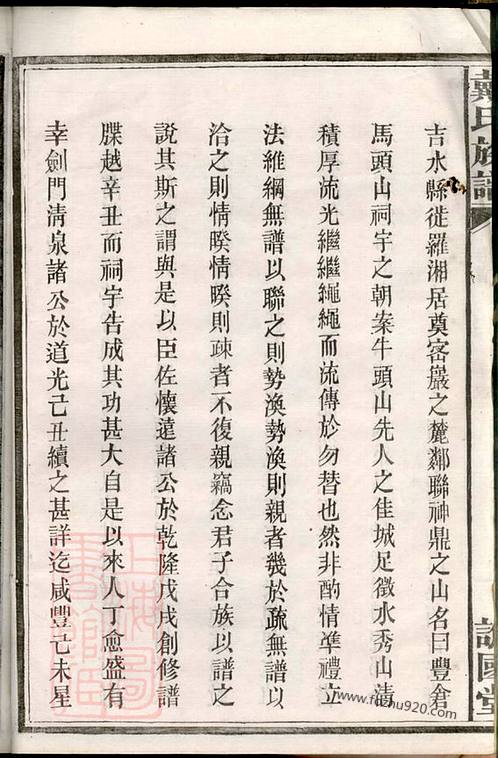 戴氏族譜
吉水縣徙羅湘居奠客巖之麓鄰聯神鼎之山名曰豐倉
馬頭山祠宇之朝案牛頭山先人之佳城足徵水秀山清
積厚流光繼繼繩繩而流傳於勿替也然非酌情準禮立
法維綱無譜以聯之則勢渙勢渙則親者幾於疏無譜以
洽之則情睽情睽則疎者不復親竊念君子合族以譜之
說其斯之謂與是以臣佐懷遠諸公於乾隆戊戌創修譜
牒越辛丑而祠宇告成其功甚大自是以來人丁愈盛有
幸劍門清泉諸公於道光己丑續之甚詳迄咸豐己未星
國堂
上海圖書館
www.fushu920.com